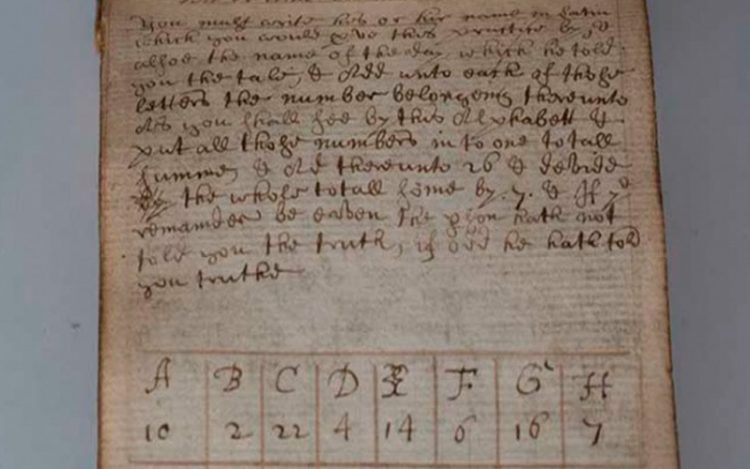 you must write his or her name in Latin
which you would prve this practice by, &
allsoe the name of the day which he told
you the tale, & Add unto each of those
letters the number belongeng thereunto
As you shall see by this Alphabett &
put all those numbers in to one totall
summe, & Ad thereunto 26 & devide
the whole totall some by .7. & If yᵉ
remainder be eaven the pson hath not
told you the truth, if odd he hath told
you truthe
A B C D E F G H
10 2 22 4 14 6 16 7